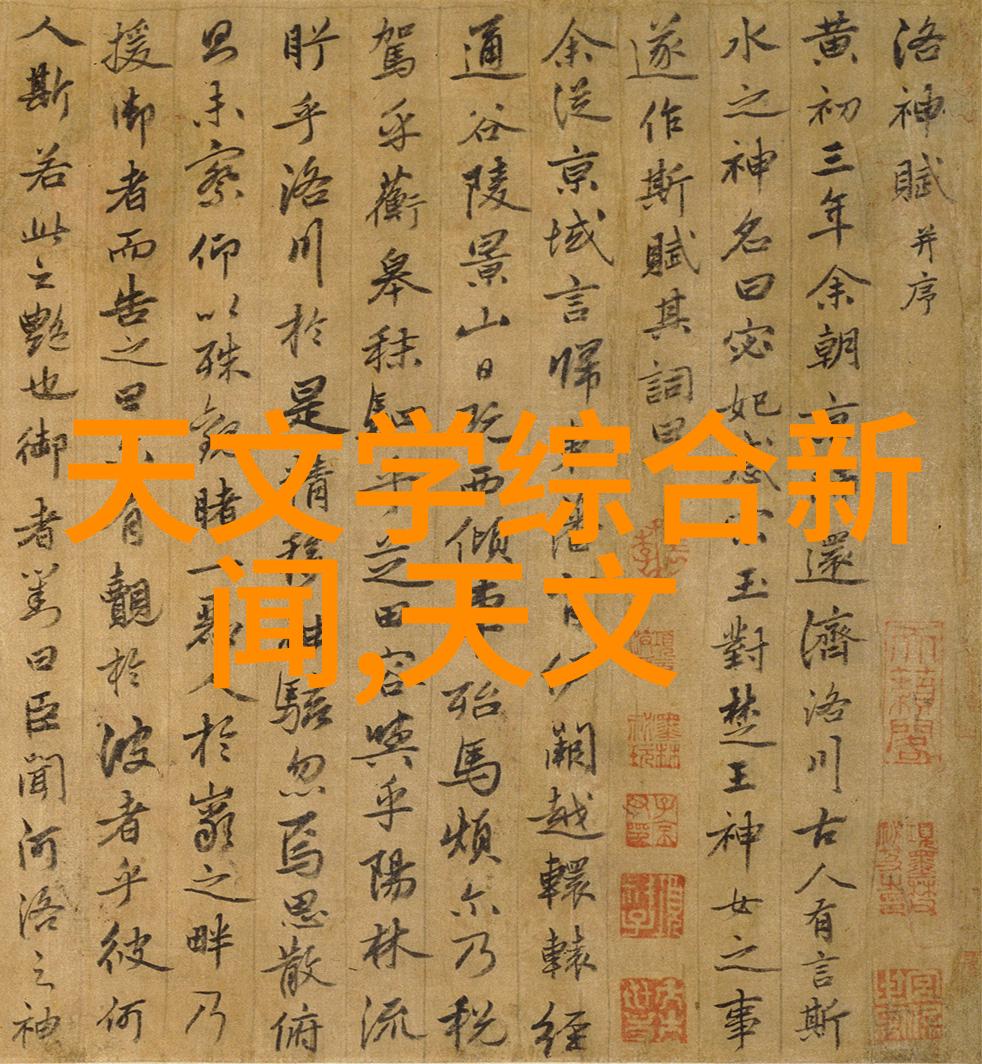 洛神賦 并序
黄初三年余朝京還濟洛川古人有言斯
水之神名曰宓妃感宋玉對楚王神女之事
遂作斯賦其詞曰
余従京域言歸東藩背伊闕越轘轅經
通谷陵景山日既西傾車殆馬煩尓乃税
駕乎蘅皋秣駟乎芝田容與乎陽林流
眄乎洛川於是精移神駭忽焉思散俯
則未察仰以殊觀睹一麗人於巖之畔乃
援御者而告之曰尓有覿於彼者乎彼何
人斯若此之艷也御者對曰臣聞河洛之神
天文学综合新
闻,天文